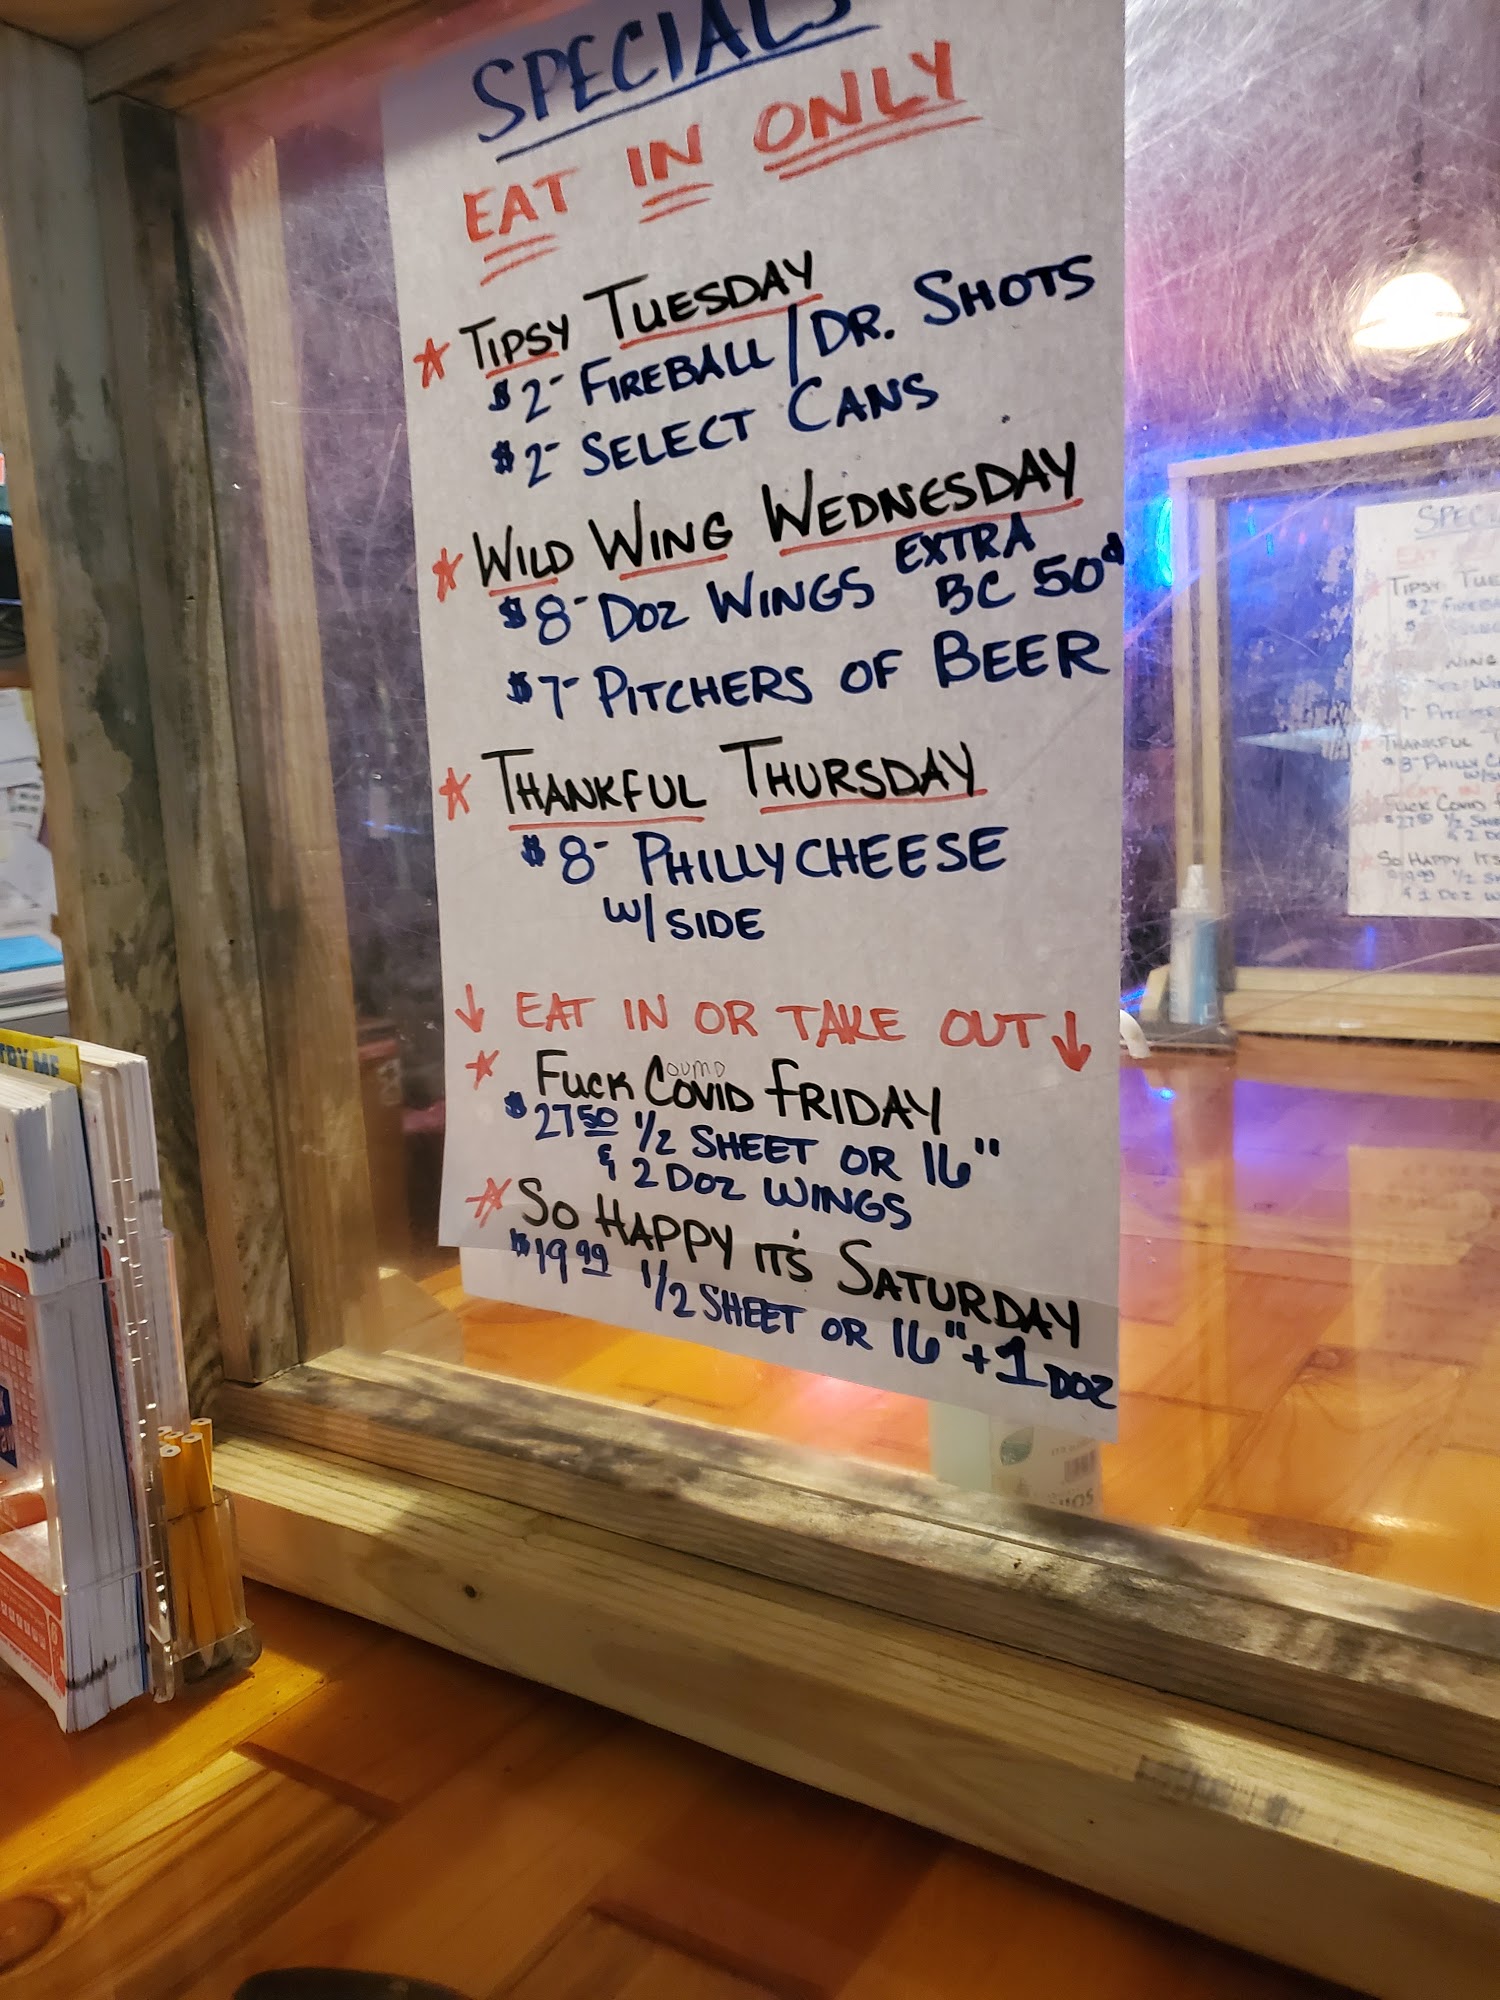 SPECIALS
EAT IN ONLY
TIPSY TUESDAY
$2- FIREBALL/DR. SHOTS
$2- SELECT CANS
WILD WING WEDNESDAY
$8- DOZ WINGS EXTRA BC 50¢
$7- PITCHERS OF BEER
THANKFUL THURSDAY
$8- PHILLYCHEESE
W/ SIDE
↓ EAT IN OR TAKE OUT ↓
FUCK COVID FRIDAY
$27.50 1/2 SHEET OR 16"
& 2 DOZ WINGS
SO HAPPY IT'S SATURDAY
$19.99 1/2 SHEET OR 16" + 1 DOZ
TRY ME
SPEC
TIPSY TUE
$2- FIREBA
WING
THANKFUL
$8- PHILLY C
W/S
FUCK COVID
$27.50 1/2 SHE
& 2 DO
SO HAPPY ITS
1/2 SH
& 1 DOZ W